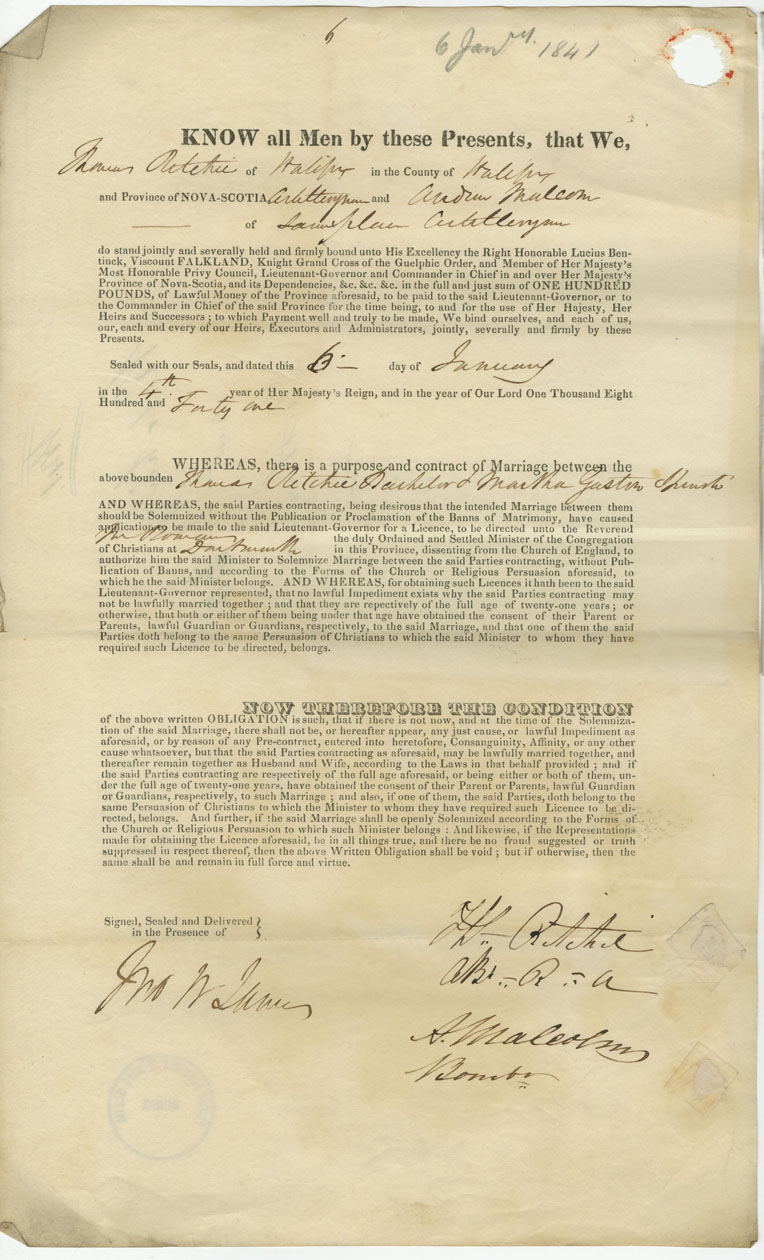 6
6 Jany. 1841
KNOW all Men by these Presents, that We,
Thomas Ritchie of Halifax in the County of Halifax
and Province of NOVA-SCOTIA Artilleryman and Andrew Malcom
of same place Artilleryman
do stand jointly and severally held and firmly bound unto His Excellency the Right Honorable Lucius Ben-
tinck, Viscount FALKLAND, Knight Grand Cross of the Guelphic Order, and Member of Her Majesty's
Most Honorable Privy Council, Lieutenant-Governor and Commander in Chief in and over Her Majesty's
Province of Nova-Scotia, and its Dependencies, &c. &c. &c. in the full and just sum of ONE HUNDRED
POUNDS, of Lawful Money of the Province aforesaid, to be paid to the said Lieutenant-Governor, or to
the Commander in Chief of the said Province for the time being, to and for the use of Her Hajesty, Her
Heirs and Successors ; to which Payment well and truly to be made, We bind ourselves, and each of us,
our, each and every of our Heirs, Executors and Administrators, jointly, severally and firmly by these
Presents.
Sealed with our Seals, and dated this 6 day of January
in the 4th year of Her Majesty's Reign, and in the year of Our Lord One Thousand Eight
Hundred and Forty one
WHEREAS, there is a purpose and contract of Marriage between the
above bounden Thomas Ritchie Bachelor & Martha Gaston Spinster
AND WHEREAS, the said Parties contracting, being desirous that the intended Marriage between them
should be Solemnized without the Publication or Proclamation of the Banns of Matrimony, have caused
application to be made to the said Lieutenant-Governor for a Licence, to be directed unto the Reverend
the duly Ordained and Settled Minister of the Congregation
of Christians at Dartmouth in this Province, dissenting from the Church of England, to
authorize him the said Minister to Solemnize Marriage between the said Parties contracting, without Pub-
lication of Banns, and according to the Forms of the Church or Religious Persuasion aforesaid, to
which he the said Minister belongs. AND WHEREAS, for obtaining such Licences it hath been to the said
Lieutenant-Governor represented, that no lawful Impediment exists why the said Parties contracting may
not be lawfully married together ; and that they are repectively of the full age of twenty-one years ; or
otherwise, that both or either of them being under that age have obtained the consent of their Parent or
Parents, lawful Guardian or Guardians, respectively, to the said Marriage, and that one of them the said
Parties doth belong to the same Persuasion of Christians to which the said Minister to whom they have
required such Licence to be directed, belongs.
NOW THEREFORE THE CONDITION
of the above written OBLIGATION is such, that if there is not now, and at the time of the Solemniza-
tion of the said Marriage, there shall not be, or hereafter appear, any just cause, or lawful Impediment as
aforesaid, or by reason of any Pre-contract, entered into heretofore, Consanguinity, Affinity, or any other
cause whatsoever, but that the said Parties contracting as aforesaid, may be lawfully married together, and
thereafter remain together as Husband and Wife, according to the Laws in that behalf provided ; and if
the said Parties contracting are respectively of the full age aforesaid, or being either or both of them, un-
der the full age of twenty-one years, have obtained the consent of their Parent or Parents, lawful Guardian
or Guardians, respectively, to such Marriage ; and also, if one of them, the said Parties, doth belong to the
same Persuasion of Christians to which the Minister to whom they have required such Licence to be di-
rected, belongs. And further, if the said Marriage shall be openly Solemnized according to the Forms of
the Church or Religious Persuasion to which such Minister belongs : And likewise, if the Representations
made for obtaining the Licence aforesaid, be in all things true, and there be no fraud suggested or truth
suppressed in respect thereof, then the above Written Obligation shall be void ; but if otherwise, then the
same shall be and remain in full force and virtue.
Signed, Sealed and Delivered }
in the Presence of
Ths Ritchie
Jno W James
A. Malcolm
Bombr